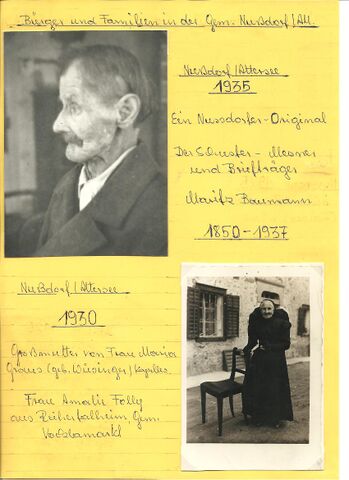 Bürger und Familien in der Gem. Nußdorf/Att.
Nußdorf/Attersee
1935
Ein Nussdorfer-Original
Der Schuster - Mesner
und Briefträger
Moritz Baumann
1850-1937
Nußdorf/Attersee
1930
Großmutter von Frau Maria
(geb. Wiesinger)
Frau Amalie Folly
aus Reichersthalheim, Gem.
Vöcklamarkt